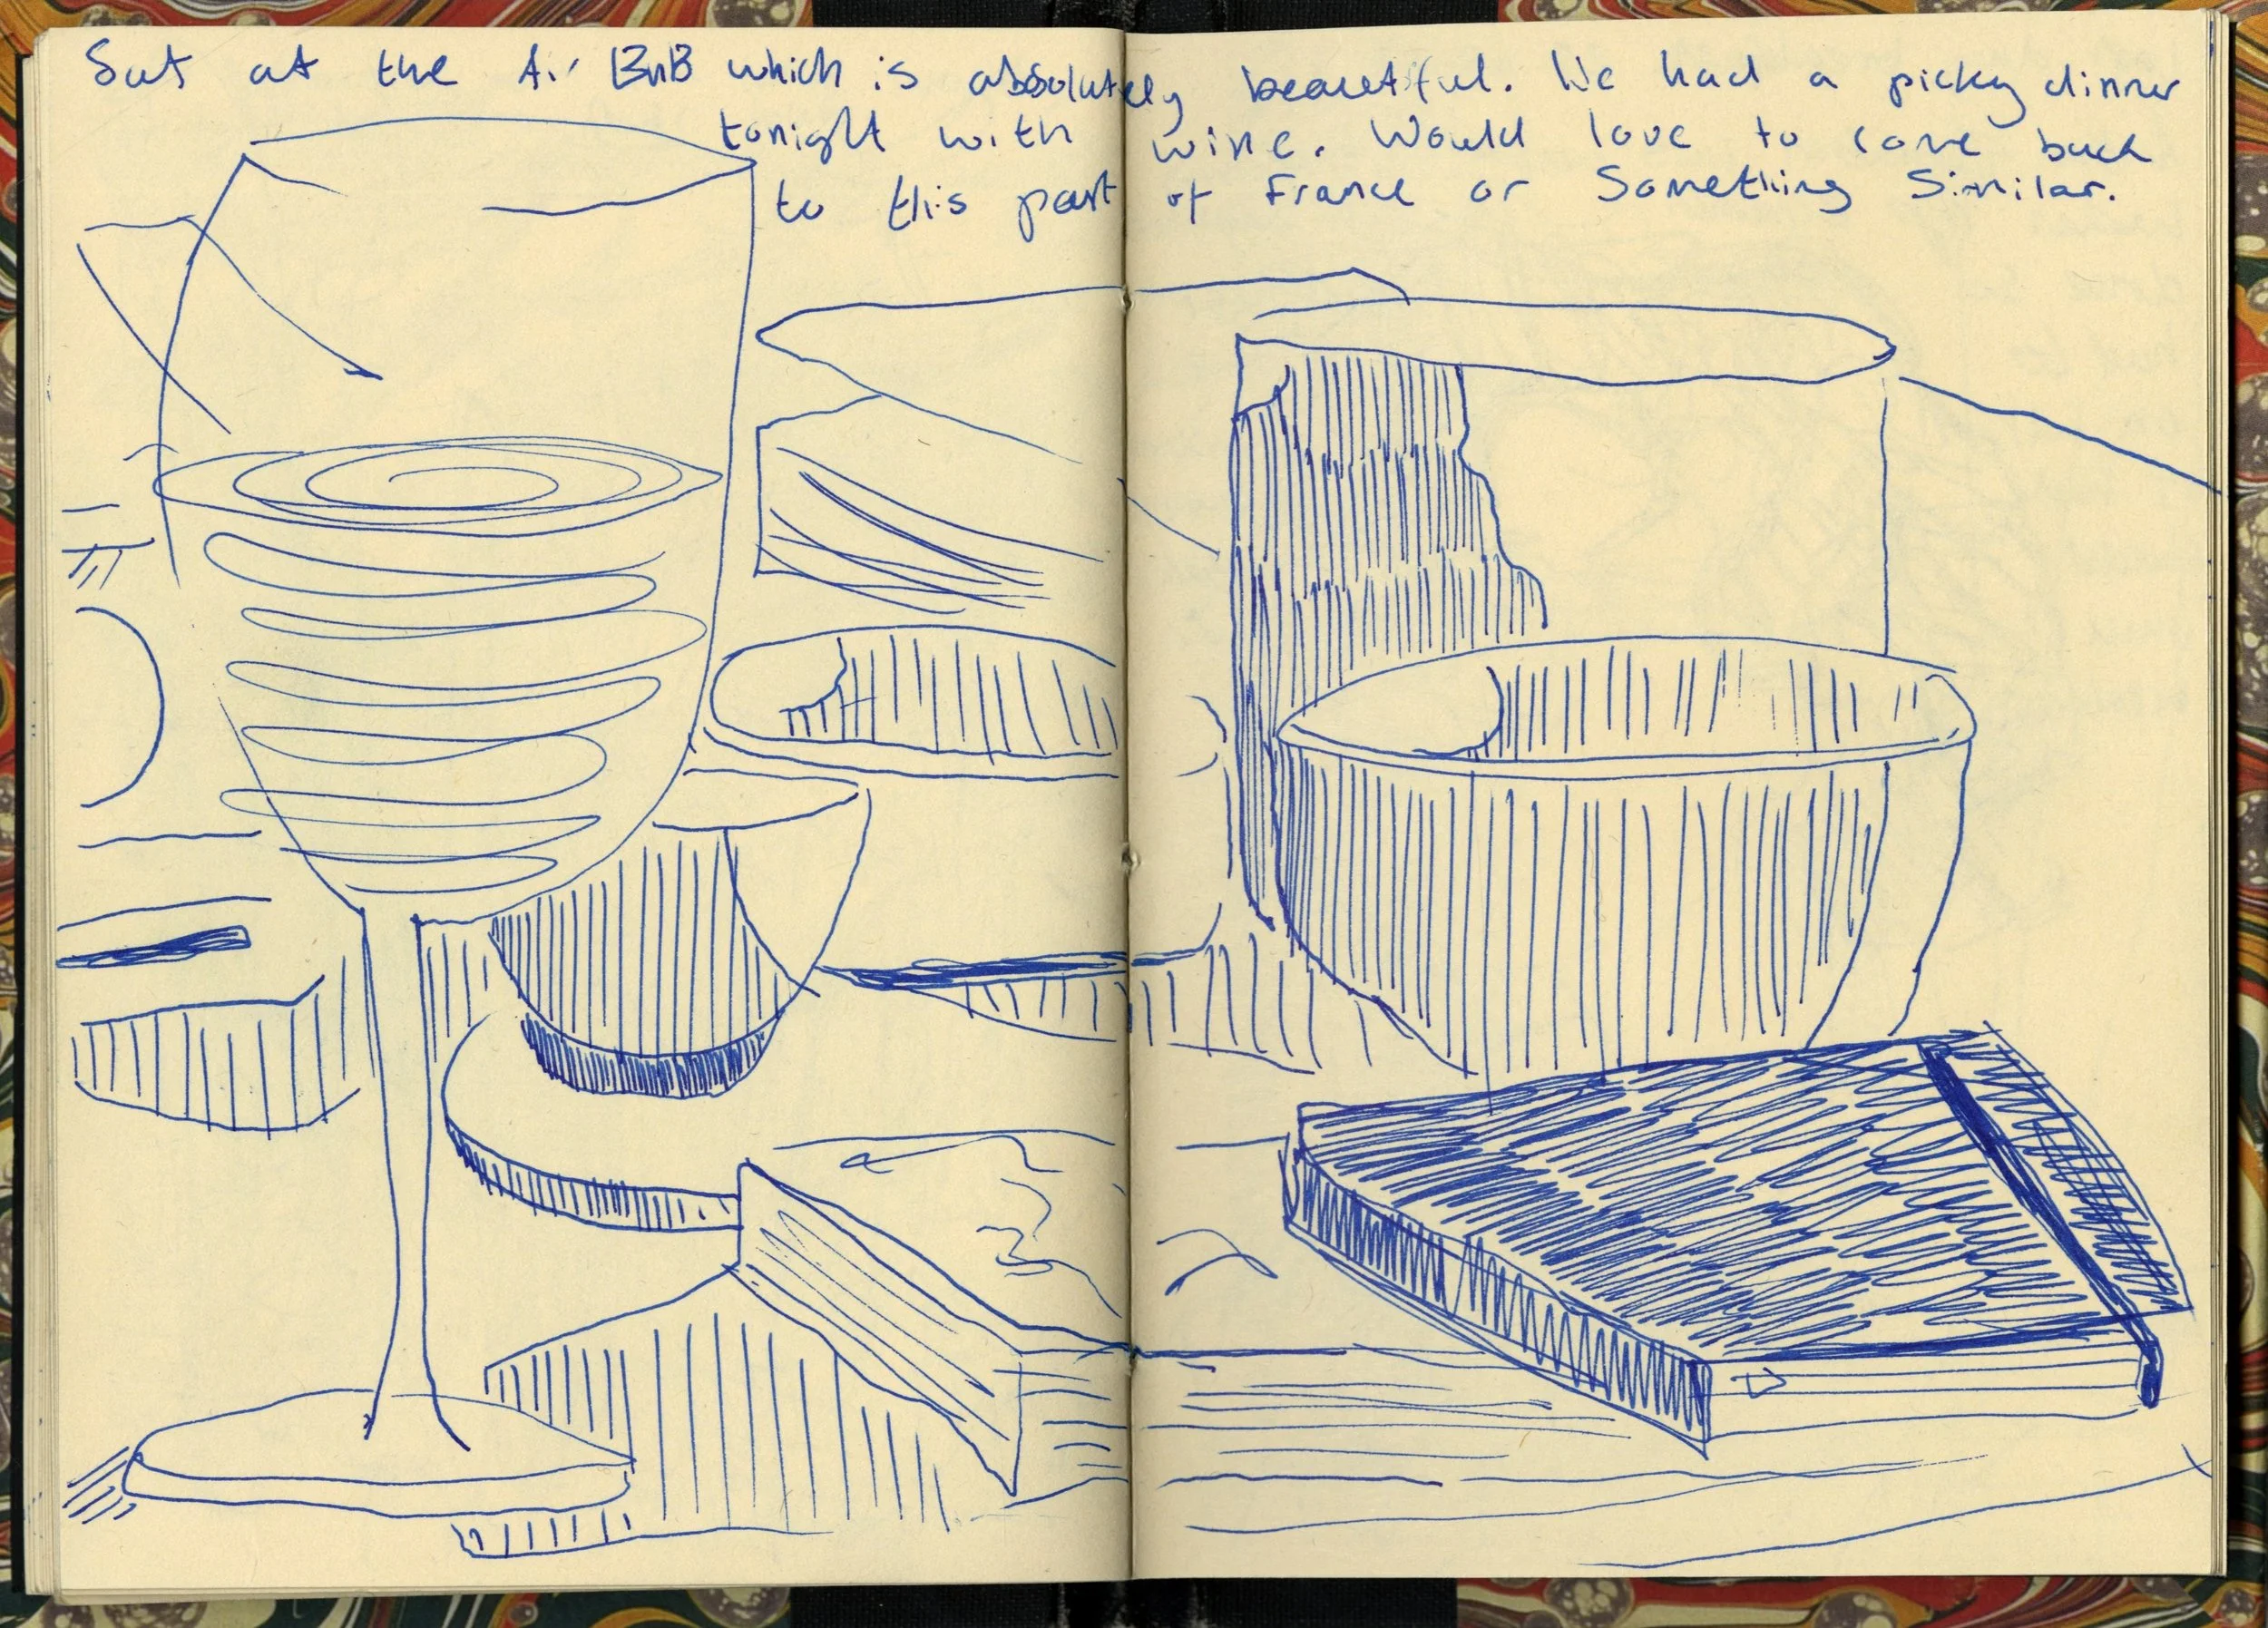 Sat at the Air BnB which is absolutely beautiful. We had a picky dinner
tonight with wine. Would love to come back
to this part of France or Something Similar.